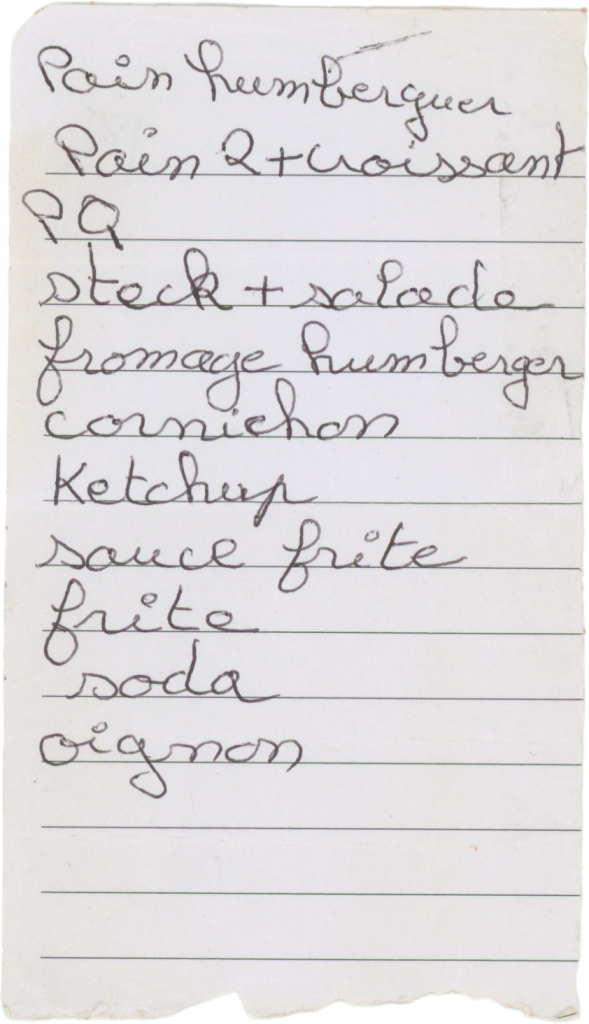 Pain humberguer
Pain 2+croissant
PQ
steck + salade
fromage humberger
cornichon
Ketchup
sauce frite
frite
soda
oignon